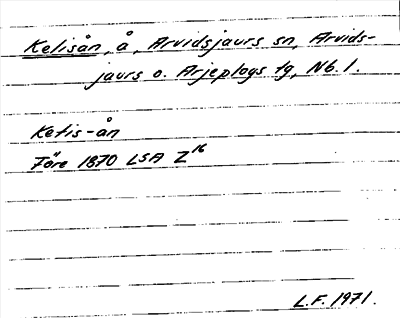 Kelisån, å, Arvidsjaurs sn, Arvids-
jaurs o. Arjeplogs tg, Nb. l.
Ketis-ån
Före 1870 LSA Z¹⁶
L.F. 1971.